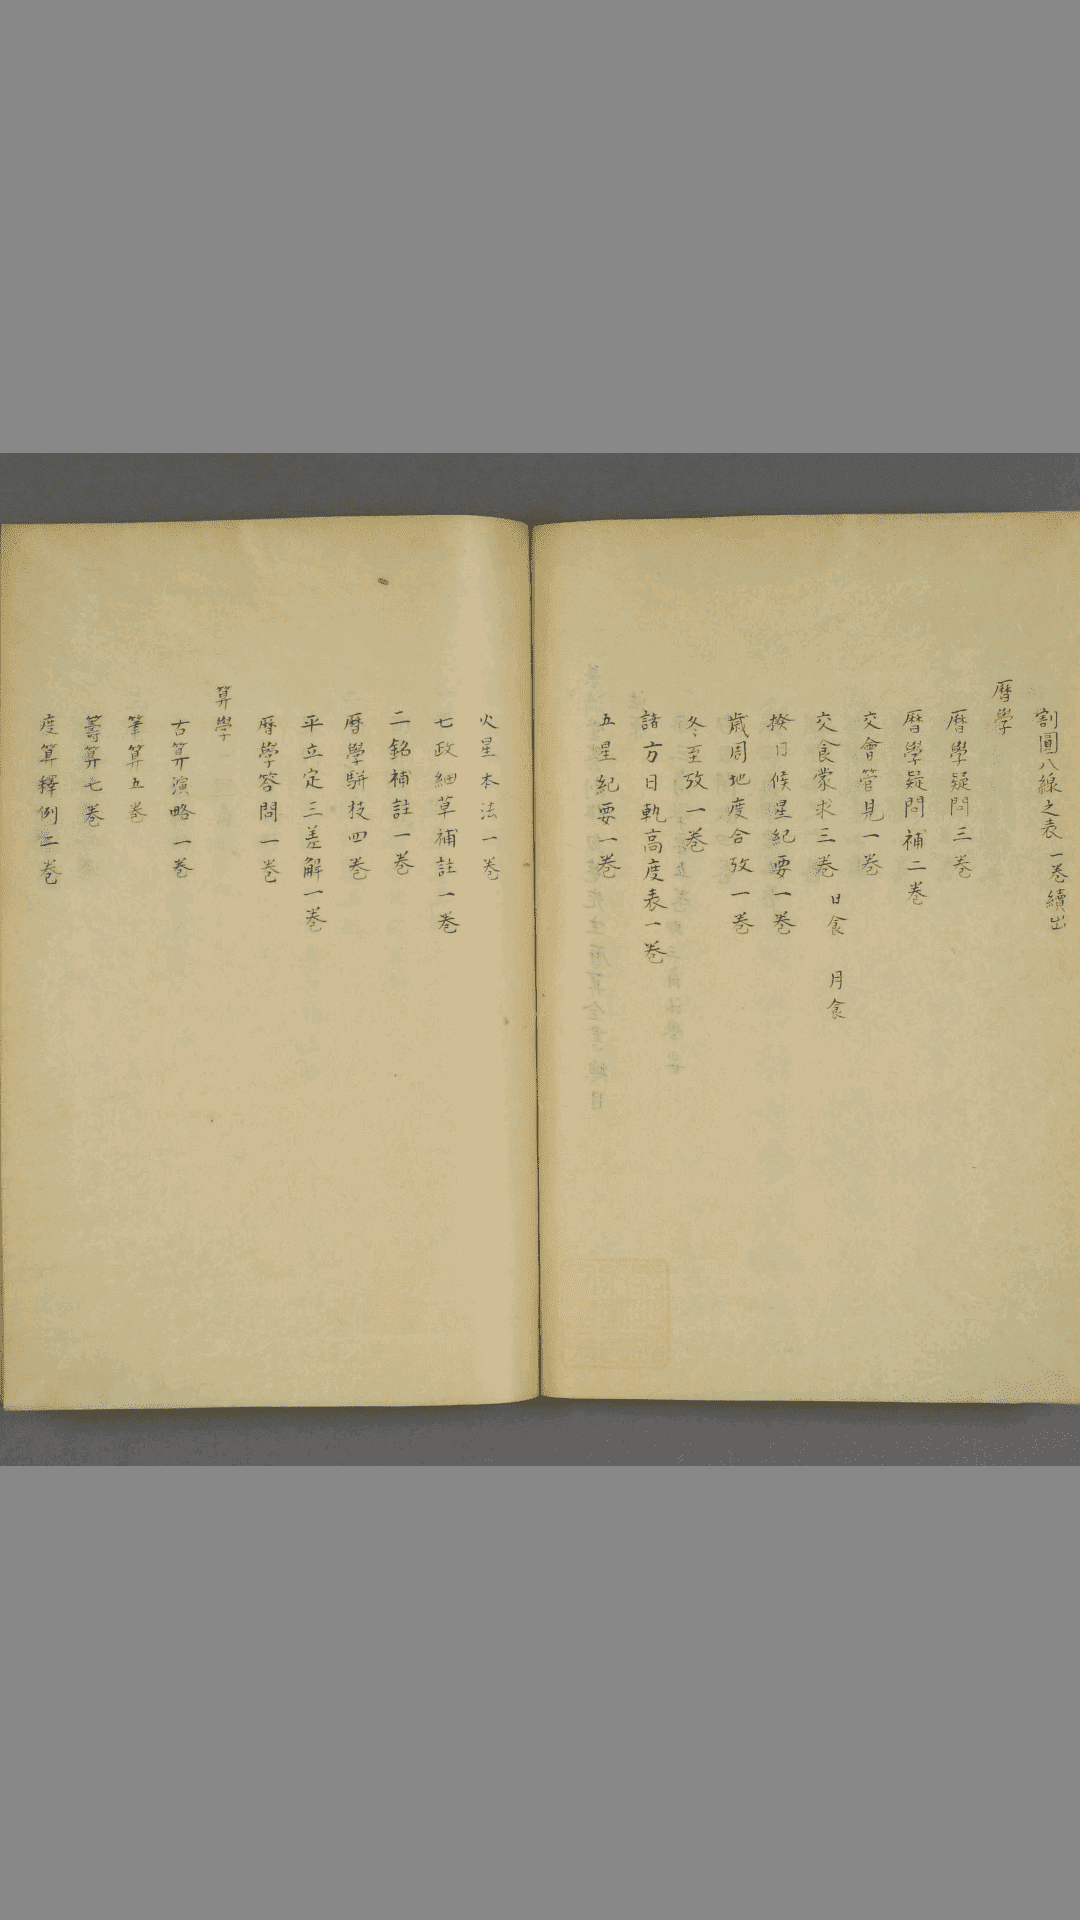 割圓八線之表一巻續出
暦學
暦學疑問三巻
暦學疑問補二巻
交會管見一巻
交食蒙求三巻 日食 月食
揆日候星紀要一巻
歳周地度合攷一巻
冬至攷一巻
諸方日軌高度表一巻
五星紀要一巻
火星本法一巻
七政細草補註一巻
二銘補註一巻
暦學駢枝四巻
平立定三差解一巻
暦學答問一巻
算學
古算演略一巻
筆算五巻
籌算七巻
度算釋例二巻